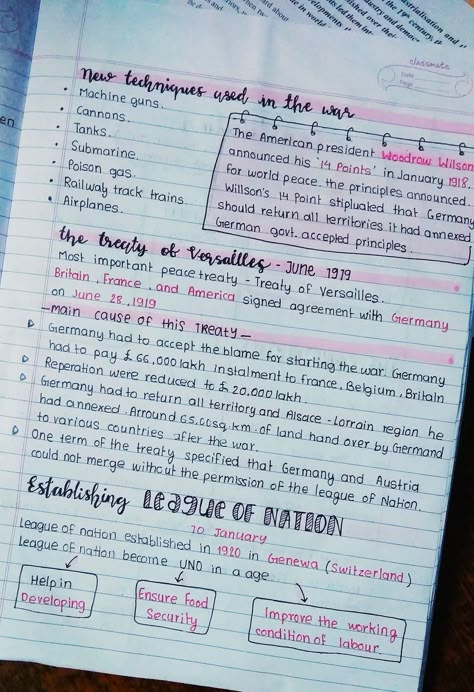 classmate
Date
Page
new techniques used in the war
• Machine guns.
• Cannons.
• Tanks.
• Submarine.
• Poison gas.
• Railway track trains.
• Airplanes.
The American president Woodrow Wilson
announced his '14 Points' in January 1918.
for world peace. the principles announced.
Willson's 14 Point stipluated that Germany
should return all territories it had annexed
German govt. accepted principles.
the treaty of Versailles - JUNE 1919
Most important peace treaty - Treaty of Versailles.
Britain, France, and America signed agreement with Germany
on June 28, 1919
—main cause of this TReaty—
Germany had to accept the blame for starting the war. Germany
had to pay £ 66,000 lakh instalment to France, Belgium, Britain
Reperation were reduced to £ 20,000 lakh.
Germany had to return all territory and Alsace-Lorrain region he
had annexed. Arround 65,00sq.km. of land hand over by Germand
to various countries after the war.
One term of the treaty specified that Germany and Austria
could not merge without the permission of the league of Nation.
Establishing LEAGUE OF NATION
10 January
League of nation established in 1920 in Genewa (Switzerland)
League of nation become UNO in a age
Help in
Developing
Ensure Food
Security
Improve the working
condition of labour